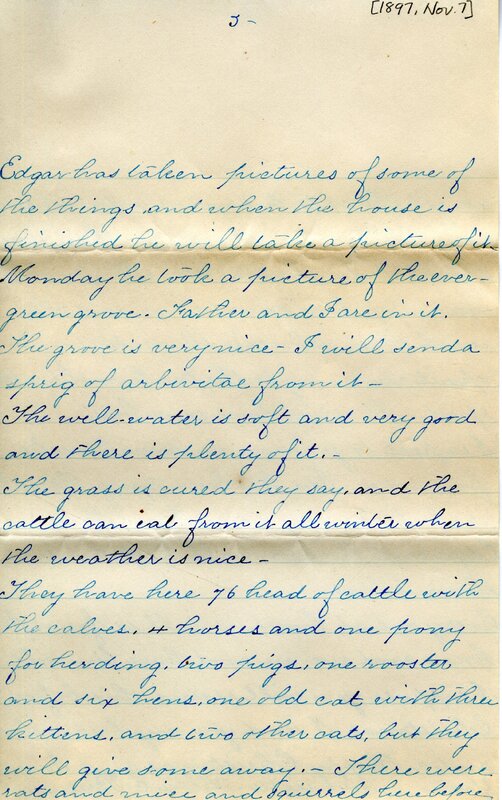 [1897, Nov. 7]
3-
Edgar has taken pictures of some of
the things, and when the house is
finished he will take a picture of it
Monday he took a picture of the ever-
green grove. Father and I are in it.
The grove is very nice - I will send a
sprig of arbivitae from it -
The well-water is soft and very good
and there is plenty of it. -
The grass is cured they say, and the
cattle can eat from it all winter when
the weather is nice -
They have here 76 head of cattle with
the calves, 4 horses and one pony
for herding, two pigs, one rooster
and six hens, one old cat with three
kittens, and two other cats, but they
will give some away. - There were
rats and mice and squirrels here before